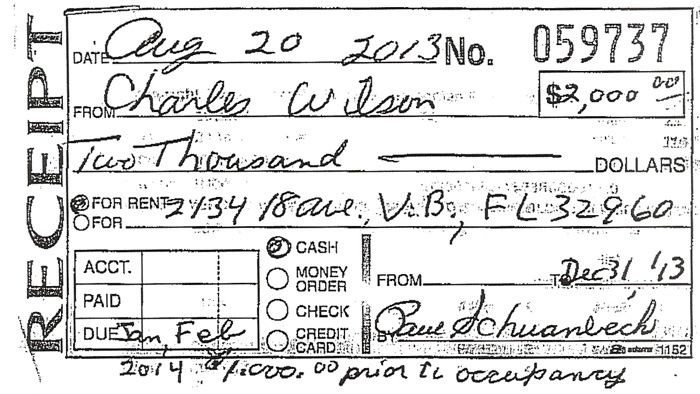 RECEIPT
DATE Aug 20 2013 No. 059737
FROM Charles Wilson $2,000 00
Two Thousand DOLLARS
FOR RENT 2134 18 ave., V.B., FL 32960
FOR
ACCT.
PAID
DUE Jan, Feb
CASH
MONEY ORDER
CHECK
CREDIT CARD
FROM TO Dec 31, '13
BY
adams 1152
2014 prior to occupancy